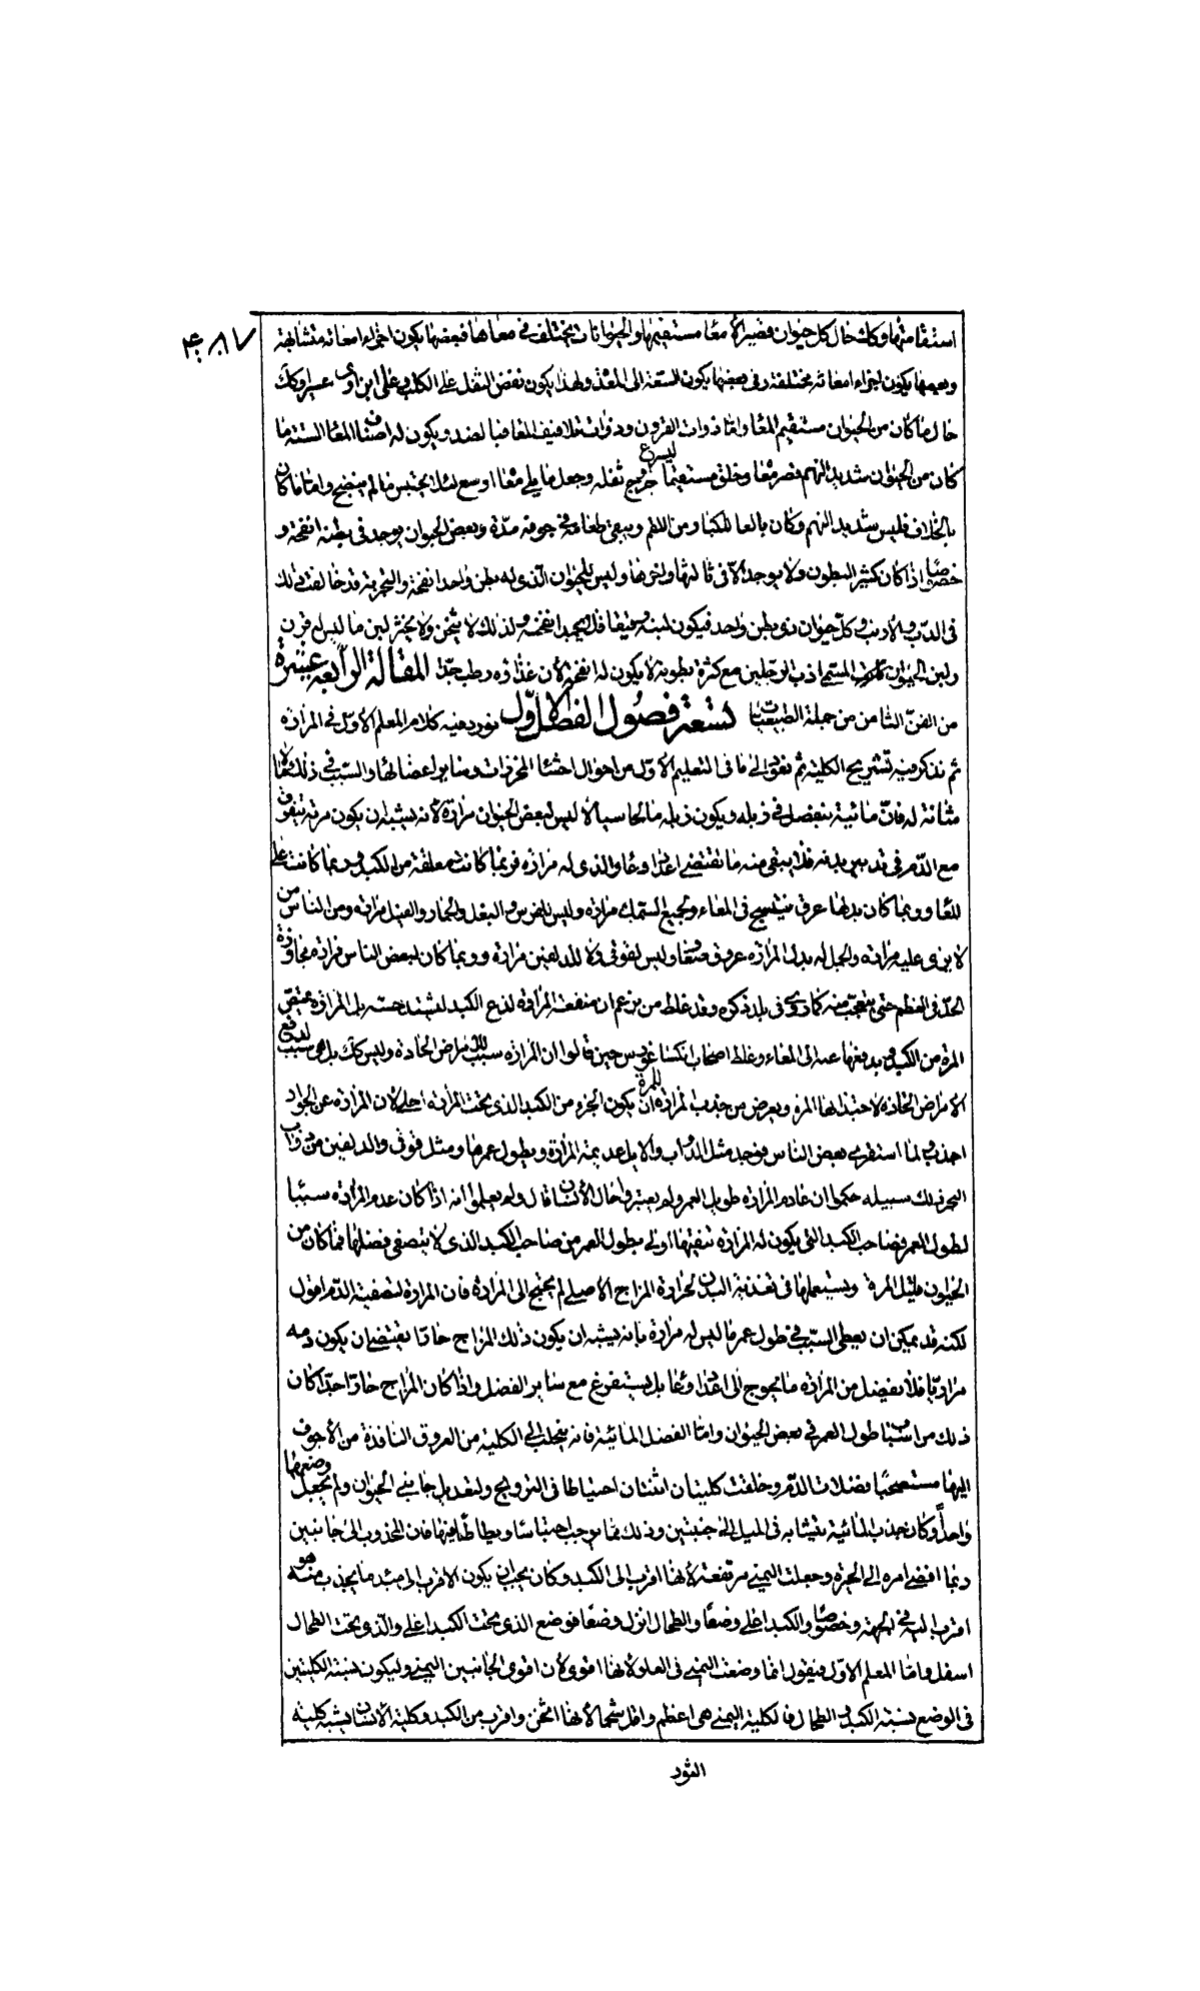 استقامتها وكك حال كل حيوان قصير الأمعا مستقيمها والحيوانات يختلف في معاها فبعضها يكون اجزاء امعائه متشابهة
وبعضها يكون اجزاء امعائه مختلفة وفي بعضها يكون السعة الى المعدة ولهذا يكون نفض الثفل على الكلب وعلى ابن اوى عسرا وكك
حال ما كان من الحيوان مستقيم المعا واما ذوات القرون وذوات تلافيف المعا فبالضد ويكون له اصناف المعا الستة ما
كان من الحيوان شديد النهم قصر معاه وخلق مستقيما ليسرع خروج ثفله وجعل ما يلي معاه اوسع لئلا يحتبس ما لم ينضج واما ما كان
بالخلاف فليس شديد النهم وكان بالعا للكبار من اللقم ويبقى طعامه في جوفه مدة وبعض الحيوان يوجد في بطنه انفحة و
خصوصا اذا كان كثير البطون ولا يوجد الا في ثالثها وليس للحيوان الذي له بطن واحد انفحة والتجربة قد خالفت ذلك
في الدب والارنب وكل حيوان ذي بطن واحد فيكون لبنه رقيقا فلا يجد انفحة ولذلك لا يثخن ولا يخثر لبن ما ليس له قرن
ولبن الحيوان المسمى اذب الرجلين مع كثرة بطونه لا يكون له انفحة لأن غذاؤه رطب جدا المقالة الرابعة عشرة
من الفن الثامن من جملة الطبيعيات تسعة فصول الفصل الاول نورد فيه كلام المعلم الأول في المرارة
ثم نذكر فيه تشريح الكلية ثم نعود الى ما في التعليم الأول من احوال احشاء المخرزات وساير اعضائها والسبب في ذلك ما لا
مثانة له فان مائية تنفصل في زبله ويكون زبله مائيا سيالا ليس لبعض الحيوان مرارة لانه يشبه ان يكون مرته تتفرق
مع الدم في تدبير بدنه فلا يبقى منه ما يقتضي اعداد وعاء والذي له مرارة فربما كانت معلقة من الكبد وربما كانت على
المعا وربما كان بدلها عرق ينتسج في المعاء ولجميع السمك مرارة وليس للفرس والبغل والحمار والفيل مرارة ومن الناس من
لا يرى عليه مرارة والجمل له بدل المرارة عروق صغار وليس لفوقي ولا للدلفين مرارة وربما كان لبعض الناس مرارة مجاوزة
الحد في العظم حتى يتعجب منه كما روى في بلد ذكره وقد غلط من يزعم ان منفعة المرارة لذع الكبد ليشتد حسه بل المرارة تمتص
المرة من الكبد ويدفعها عنه الى المعاء وغلط اصحاب انكساغورس حين قالوا ان المرارة سبب للامراض الحادة وليس كك بل هي سبب لدفع
الامراض الحادة لاجتذابها المرة ويعرض من جذب المرارة للمرة ان يكون الجزء من الكبد الذي تحت المرارة احلى لأن المرارة عن الجوار
اجذب ولما استقرى بعض الناس فوجد مثل الدواب والابل عديمة المرارة ويطول عمرها ومثل فوقي والدلفين من دواب
البحر ذلك سبيله حكموا ان عادم المرارة طويل العمر ولم يعتبروا حال الأنسان قال ولم يعلموا انه اذا كان عدم المرارة سببا
لطول العمر فصاحب الكبد التي يكون له المرارة تنقيها اولى بطول العمر من صاحب الكبد الذي لا يتصفى فضلها فما كان من
الحيوان قليل المرة ويستعملها في تغذية البدن لحرارة المزاج الاصلي لم يحتج الى المرارة فان المرارة لتصفية الدم اقول
لكنه قد يمكن ان يعطى السبب في طول عمر ما ليس له مرارة بانه يشبه ان يكون ذلك المزاج حارا يقتضي ان يكون دمه
مراريا فلا يفضل من المرارة ما يحوج الى اعداد وعاء بل يستفرغ مع ساير الفضل واذا كان المزاج حارا جدا كان
ذلك من اسباب طول العمر في بعض الحيوان واما الفضل المائية فانه ينجلب الى الكلية من العروق النافذة من الأجوف
اليها مستصحبا فضلات الدم وخلقت كليتان اثنتان احتياطا في الترويج ولتعديل جانبي الحيوان ولم يجعل وضعها
واحدا وكان جذب المائية يتشابه في الميل الى جنبتين وذلك مما يوجب احتباسا وبطاطا فيها فان المجذوب الى جانبين
ربما افضى امره الى الحيرة وجعلت اليمنى مرتفعة لأنها اقرب الى الكبد وكان يجب ان يكون الاقرب الى مبدء ما يجذب منه هو
اقرب اليه في الجهة وخصوصا والكبد اعلى وضعا والطحال انزل وضعا فوضع الذي تحت الكبد اعلى والذي تحت الطحال
اسفل واما المعلم الاول فيقول انما وضعت اليمنى في العلو لانها اقوى لأن اقوى الجانبين اليمنى وليكون نسبة الكليتين
في الوضع نسبة الكبد والطحال والكلية اليمنى هي اعظم واقل شحما لأنها اسخن واقرب من الكبد وكلية الأنسان يشبه كلية
الثور